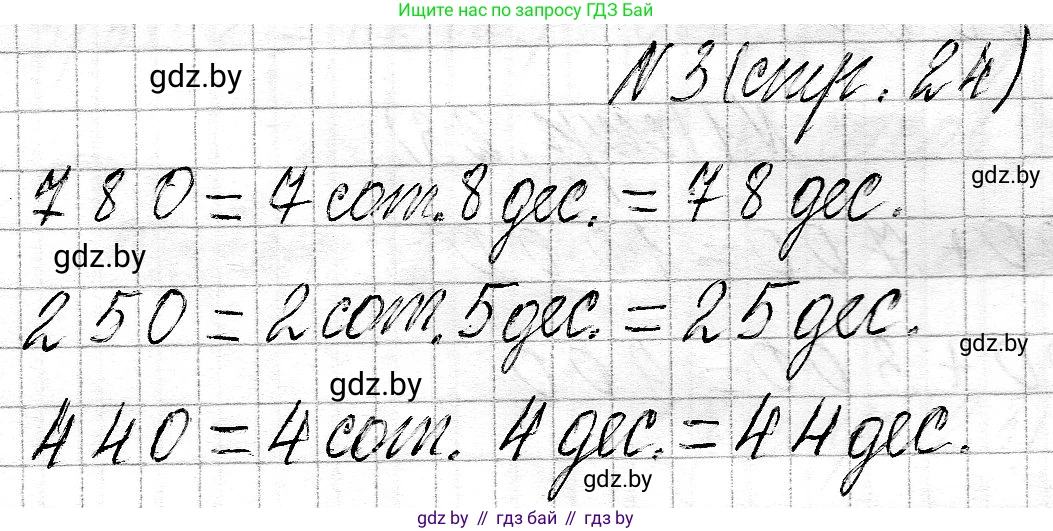 Ищите нас по запросу ГДЗ Бай
gdz.by
N 3 (стр. 24)
780 = 7 сот. 8 дес. = 78 дес.
gdz.by
gdz.by
250 = 2 сот. 5 дес. = 25 дес.
gdz.by
gdz.by
440 = 4 сот. 4 дес. = 44 дес.
gdz.by
gdz.by // гдз бай // гдз by